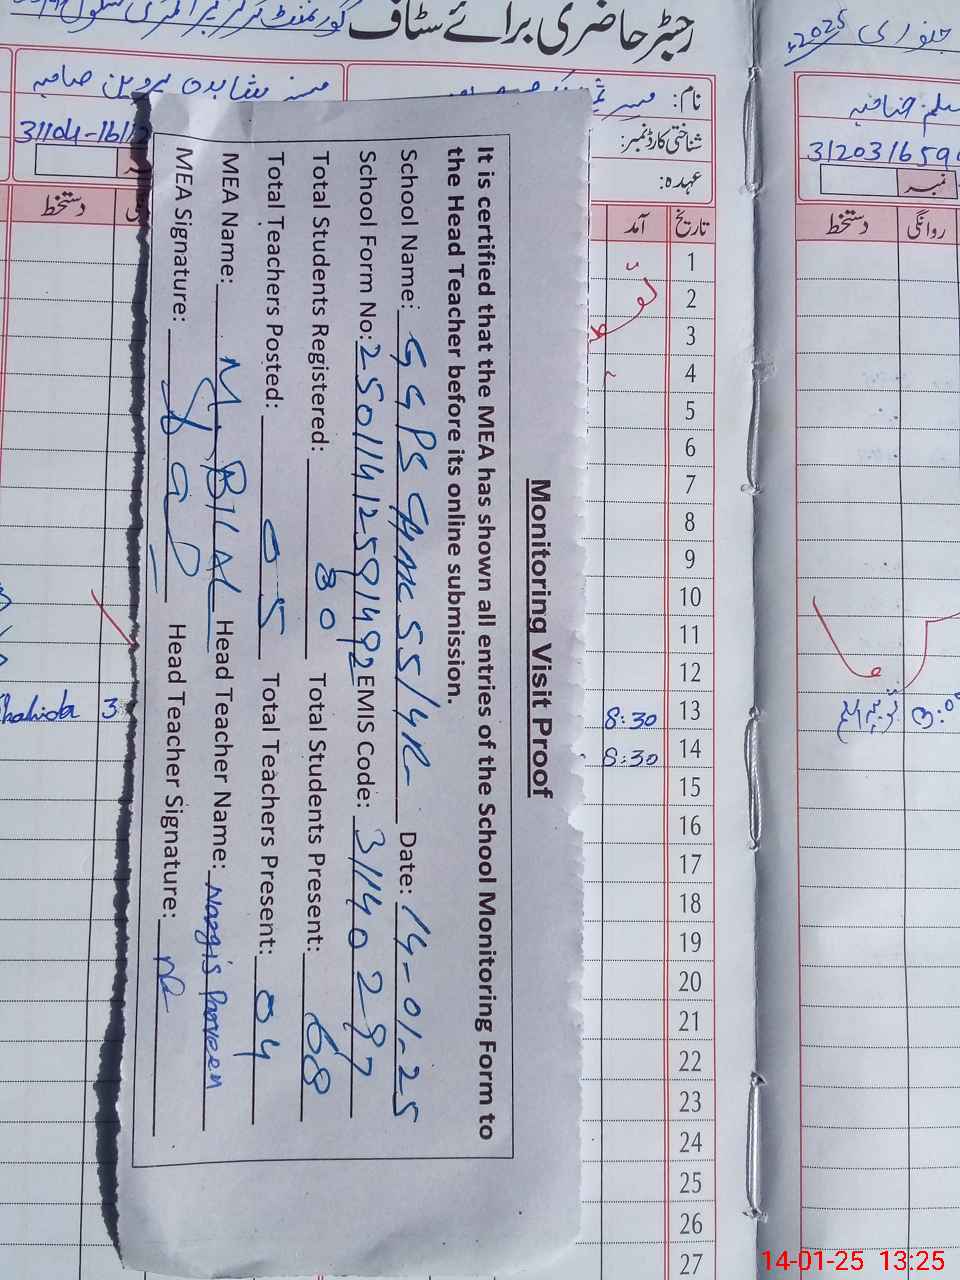 رجسٹر حاضری برائے سٹاف
جنوری 2025ء
نام:
شناختی کارڈ نمبر:
عہدہ:
مسز شاہدہ پروین صاحبہ
31104-1611
3120316590
نمبر
تاریخ
آمد
دستخط
روانگی
دستخط
1
2
3
4
5
6
7
8
9
10
11
12
13 8:30
14 8:30
15
16
17
18
19
20
21
22
23
24
25
26
27
Shahida 3
Monitoring Visit Proof
It is certified that the MEA has shown all entries of the School Monitoring Form to
the Head Teacher before its online submission.
School Name: GGPS CHAK 55/4R Date: 14-01-25
School Form No: 25011412591492 EMIS Code: 31140297
Total Students Registered: 80 Total Students Present: 68
Total Teachers Posted: 05 Total Teachers Present: 04
MEA Name: M. BILAL Head Teacher Name: Nargis Parveen
MEA Signature: Head Teacher Signature:
14-01-25 13:25